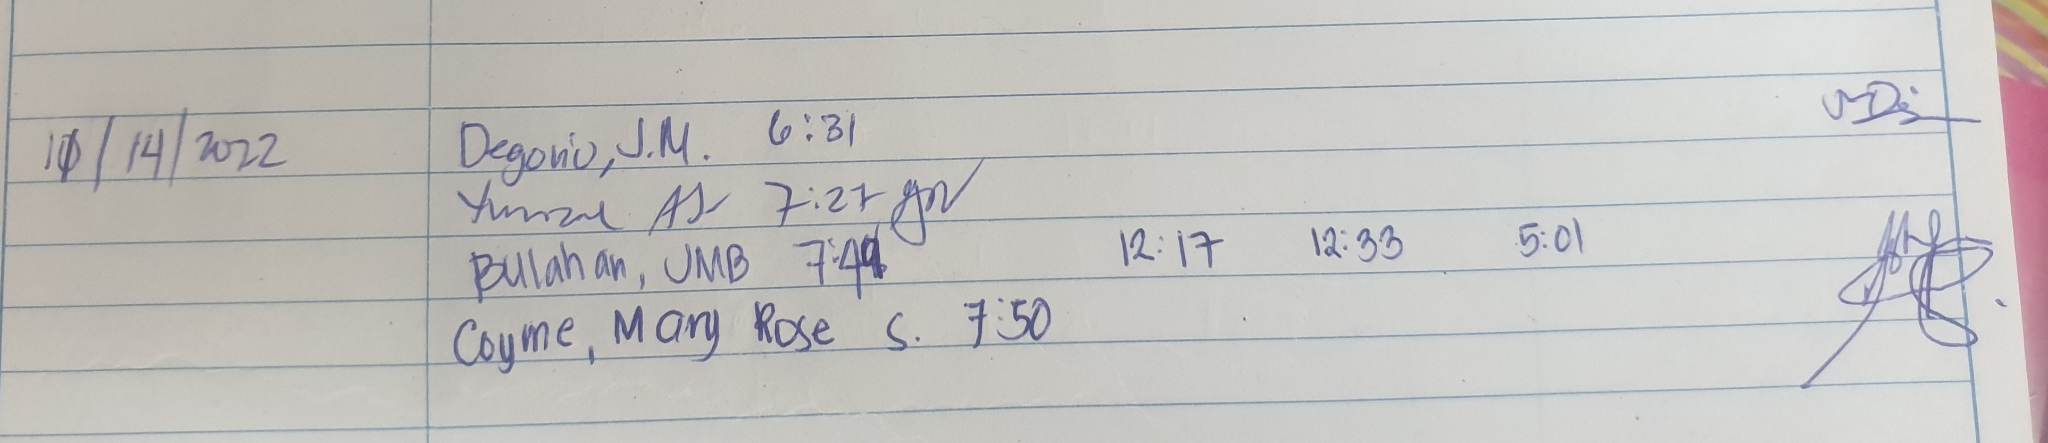 10/14/2022 Degorio, J.M. 6:31
AS 7:27
Bulahan, JMB 7:49 12:17 12:33 5:01
Coyme, Mary Rose S. 7:50